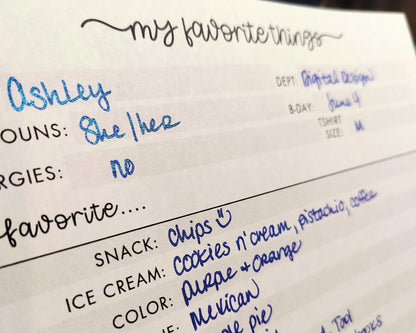 my favorite things
Ashley
DEPT: Digital Design
OUNS: She/her
B-DAY: June 4
TSHIRT
SIZE: M
RGIES: no
favorite....
SNACK: Chips
ICE CREAM: cookies n' cream, pistachio, coffee
COLOR: purple + orange
NE: Mexican
pie
Tool